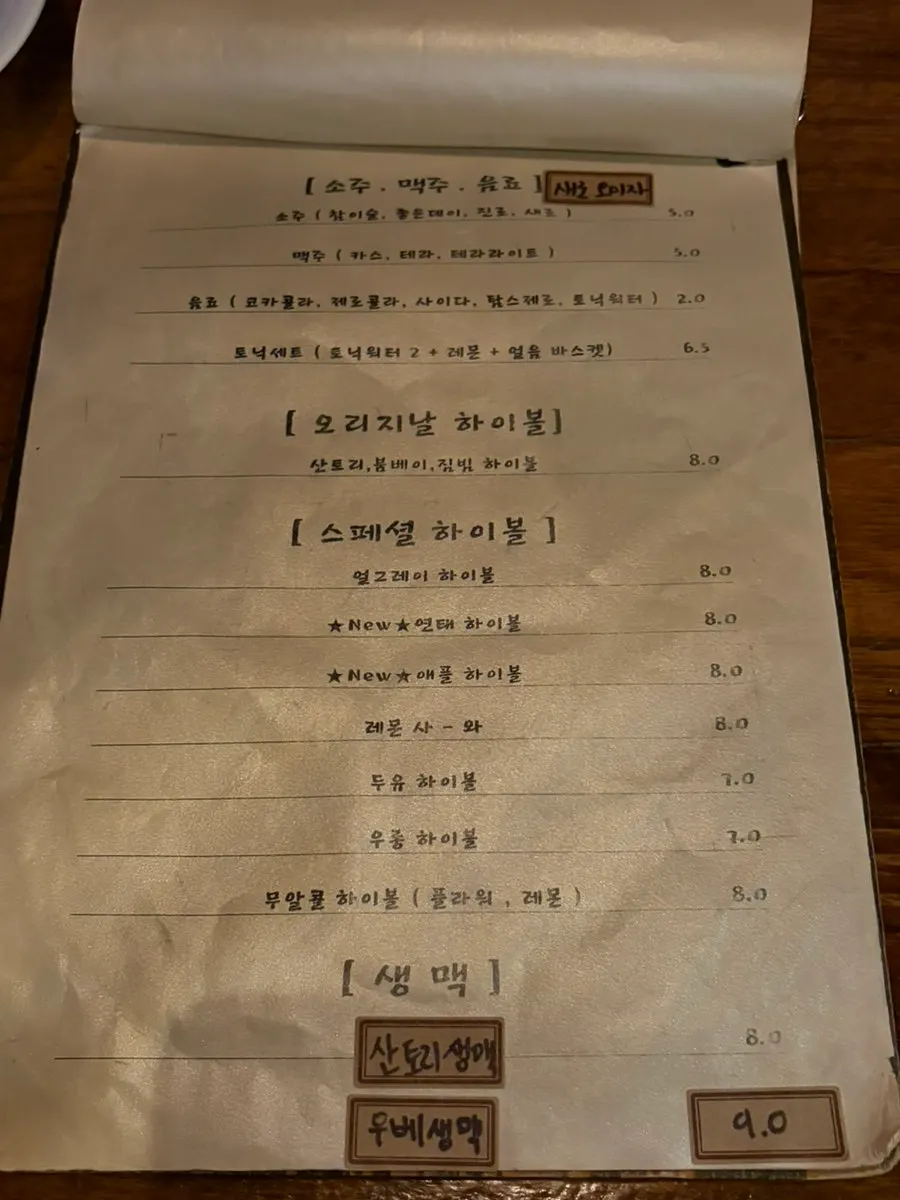 [ 소주 . 맥주 . 음료 ] 새로 오미자
소주 ( 참이슬, 좋은데이, 진로, 새로 ) 5.0
맥주 ( 카스, 테라, 테라라이트 ) 5.0
음료 ( 코카콜라, 제로콜라, 사이다, 탐스제로, 토닉워터 ) 2.0
토닉세트 ( 토닉워터 2 + 레몬 + 얼음 바스켓) 6.5
[ 오리지날 하이볼]
산토리,봄베이,짐빔 하이볼 8.0
[ 스페셜 하이볼 ]
얼그레이 하이볼 8.0
★New★연태 하이볼 8.0
★New★애플 하이볼 8.0
레몬 사 - 와 8.0
두유 하이볼 7.0
우롱 하이볼 7.0
무알콜 하이볼 ( 플라워 , 레몬 ) 8.0
[ 생 맥 ]
산토리생맥 8.0
우베생맥 9.0